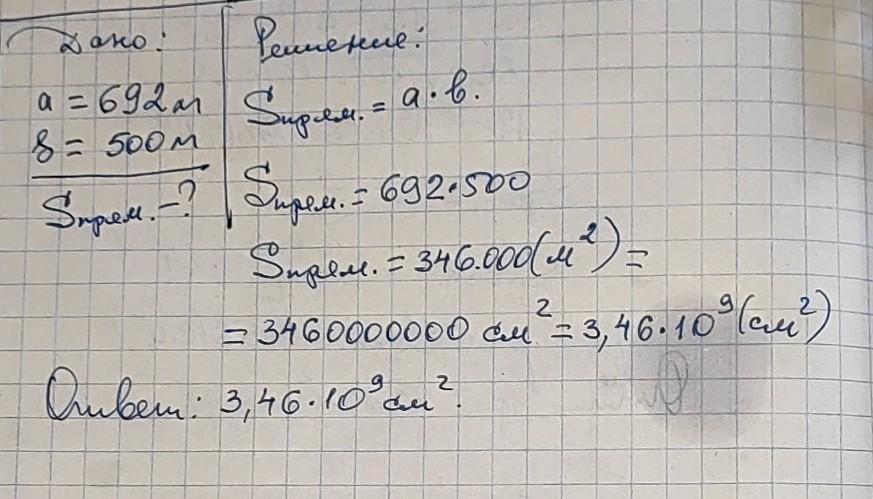 Дано:
a = 692 м
b = 500 м
Sпрям. - ?
Решение:
Sпрям. = a · b.
Sпрям. = 692 · 500
Sпрям. = 346.000 (м²) =
= 3460000000 см² = 3,46 · 10⁹ (см²)
Ответ: 3,46 · 10⁹ см².